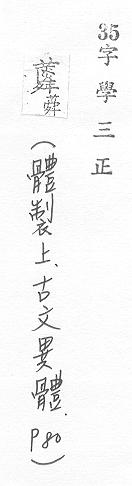 35字學三正
蕣
(體製上、古文異體. P80)